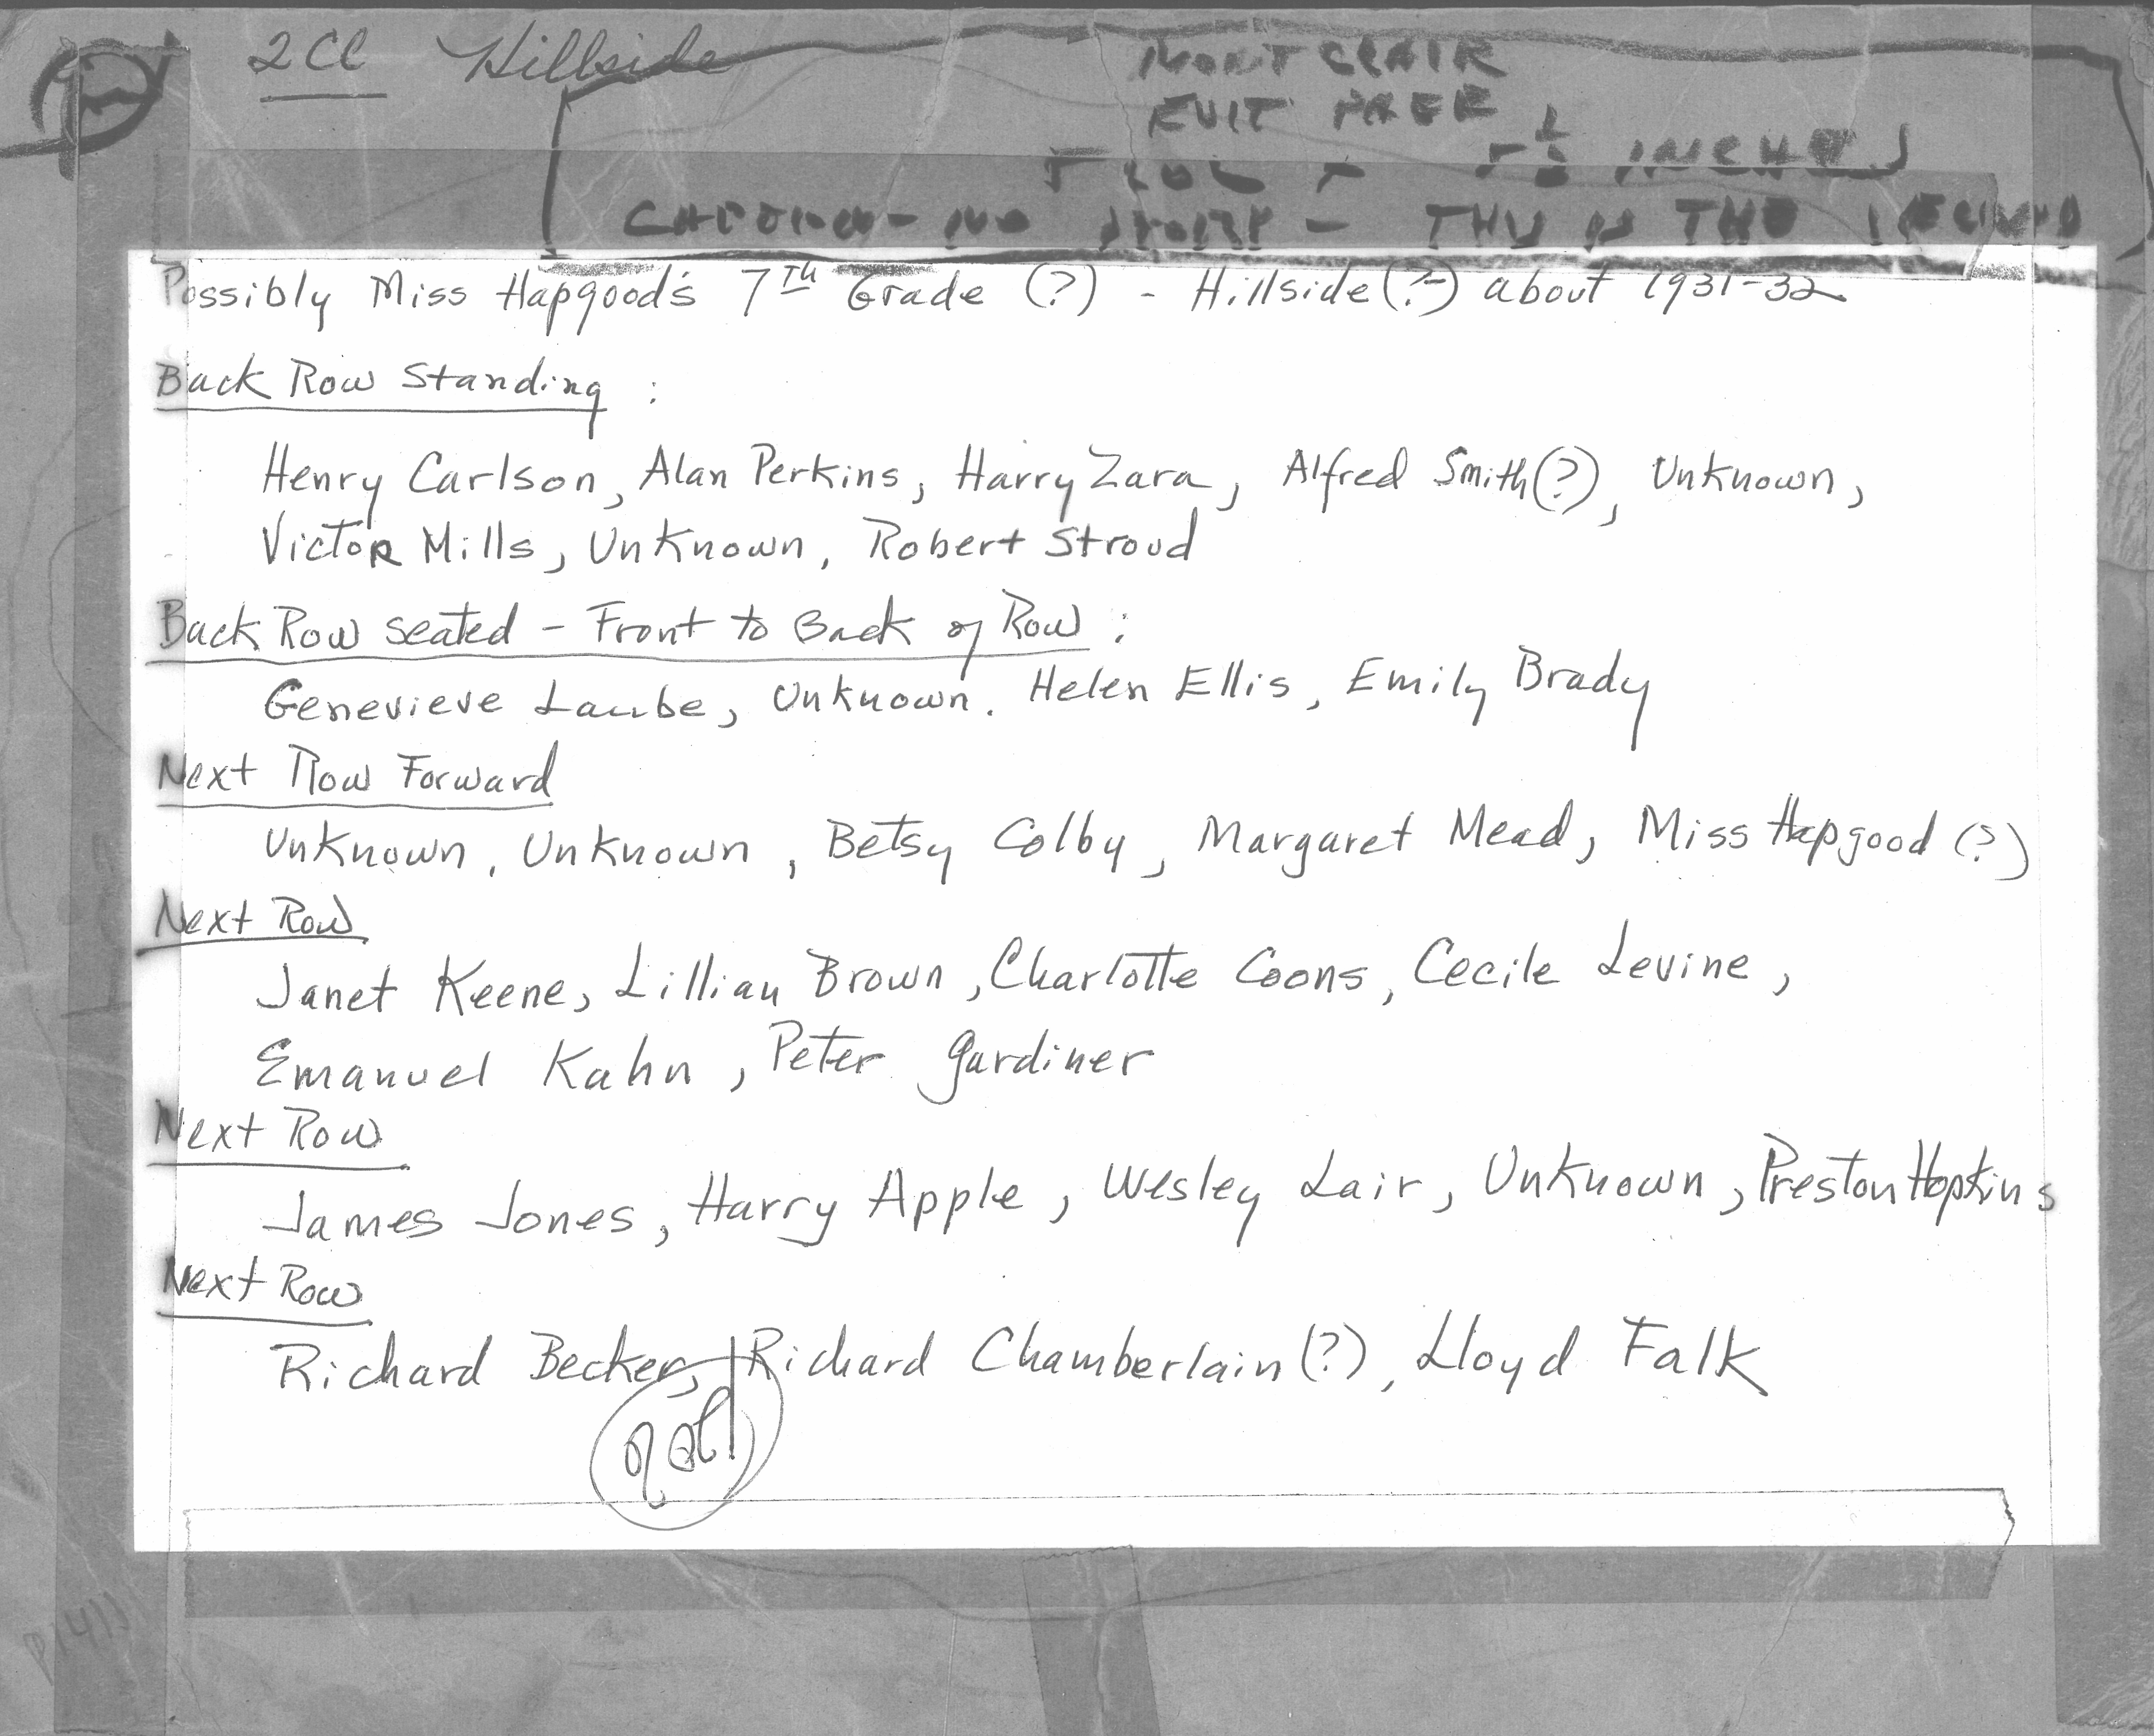 2CC Hillside
MONTCLAIR
INCHES
NO THE
Possibly Miss Hapgood's 7Th Grade (?) - Hillside (?) about 1931-32
Back Row Standing :
Henry Carlson, Alan Perkins, Harry Zara, Alfred Smith(?), Unknown,
Victor Mills, Unknown, Robert Stroud
Back Row seated - Front to Back of Row :
Genevieve Laube, Unknown. Helen Ellis, Emily Brady
Next Row Forward
Unknown, Unknown, Betsy Colby, Margaret Mead, Miss Hapgood (?)
Next Row
Janet Keene, Lillian Brown, Charlotte Coons, Cecile Levine,
Emanuel Kahn, Peter Gardiner
Next Row
James Jones, Harry Apple, Wesley Lair, Unknown, Preston Hopkins
Next Row
Richard Becker, Richard Chamberlain(?), Lloyd Falk